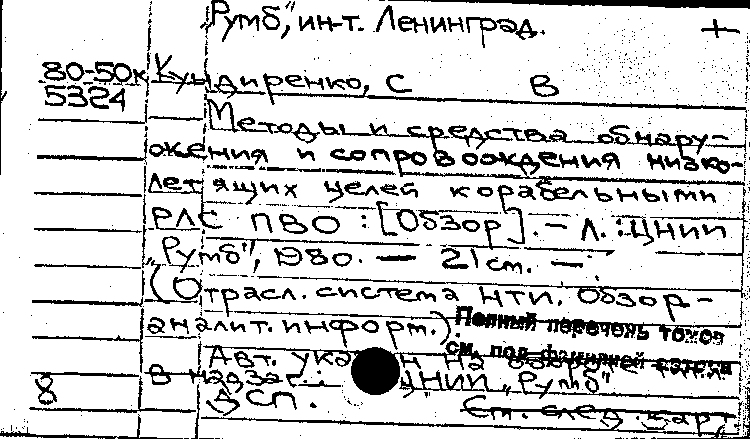 „Румб", ин-т. Ленинград. +
80-50к
5324
Кундиренко, С В
Методы и средства обнару-
жения и сопровождения низко-
летящих целей корабельными
РЛС ПВО : [Обзор]. – Л. : ЦНИИ
„Румб", 1980. — 21 см. —
(Отрасл. система НТИ. Обзор-
аналит. информ.).
Полный перечень томов
см. под фамилией автора
Авт. указан на обороте
В надзаг.: ЦНИИ „Румб"
8 ДСП.
См. след. карт.